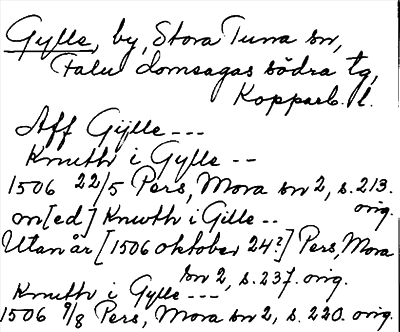 Gylle, by, Stora Tuna sn,
Falu domsagas södra tg,
Kopparb. l.
Aff Gÿlle ---
Knuth i Gylle --
1506 22/5 Pers, Mora sn 2, s. 213.
orig.
on[ed] Knwth i Gille --
Utan år [1506 oktober 24?] Pers, Mora
sn 2, s. 237. orig.
Knuth i Gylle ---
1506 9/8 Pers, Mora sn 2, s. 220. orig.